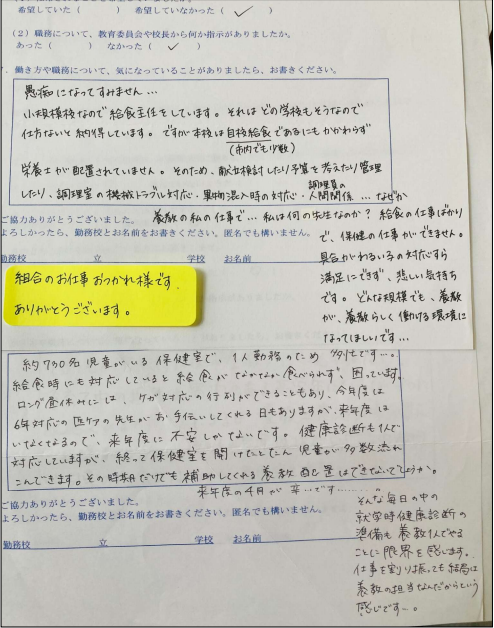 希望していた（　　　）　希望していなかった（ ✓ ）
（2）職務について、教育委員会や校長から何か指示がありましたか。
あった（　　　）　なかった（ ✓ ）
働き方や職務について、気になっていることがありましたら、お書きください。
愚痴になってすみません…
小規模校なので給食主任をしています。それはどの学校もそうなので
仕方ないと納得しています。ですが本校は自校給食であるにもかかわらず
(市内でも少数)
栄養士が配置されていません。そのため、献立検討したり予算を考えたり管理
したり、調理室の機械トラブル対応・異物混入時の対応・調理員の人間関係…なぜか
養教の私の仕事で…私は何の先生なのか？給食の仕事ばかり
で、保健の仕事ができません。
具合がわるい子の対応すら
満足にできず、悲しい気持ち
です。どんな規模でも、養教
が、養教らしく働ける環境に
なってほしいです…
ご協力ありがとうございました。
よろしかったら、勤務校とお名前をお書きください。匿名でも構いません。
勤務校　　　立　　　学校　お名前
組合のお仕事おつかれ様です。
ありがとうございます。
約700名児童がいる保健室で、1人勤務のため多忙です…。
給食時にも対応していると給食がなかなか食べられず、困っています。
ロング昼休みには、ケガ対応の行列ができることもあり、今年度は
6年対応の の先生がお手伝いしてくれる日もありますが、来年度は
いなくなるので、来年度に不安しかないです。健康診断も1人で
対応していますが、終って保健室を開けたとたん児童が多数流れ
こんできます。その時期だけでも補助してくれる養教配置はできないでしょうか。
来年度の4月が です……
そんな毎日の中の
就学時健康診断の
準備も養教1人でやる
ことに限界を感じます。
仕事を割り振っても結局は
養教の担当なんだからという
感じです…。
ご協力ありがとうございました。
よろしかったら、勤務校とお名前をお書きください。匿名でも構いません。
勤務校　　　立　　　学校　お名前